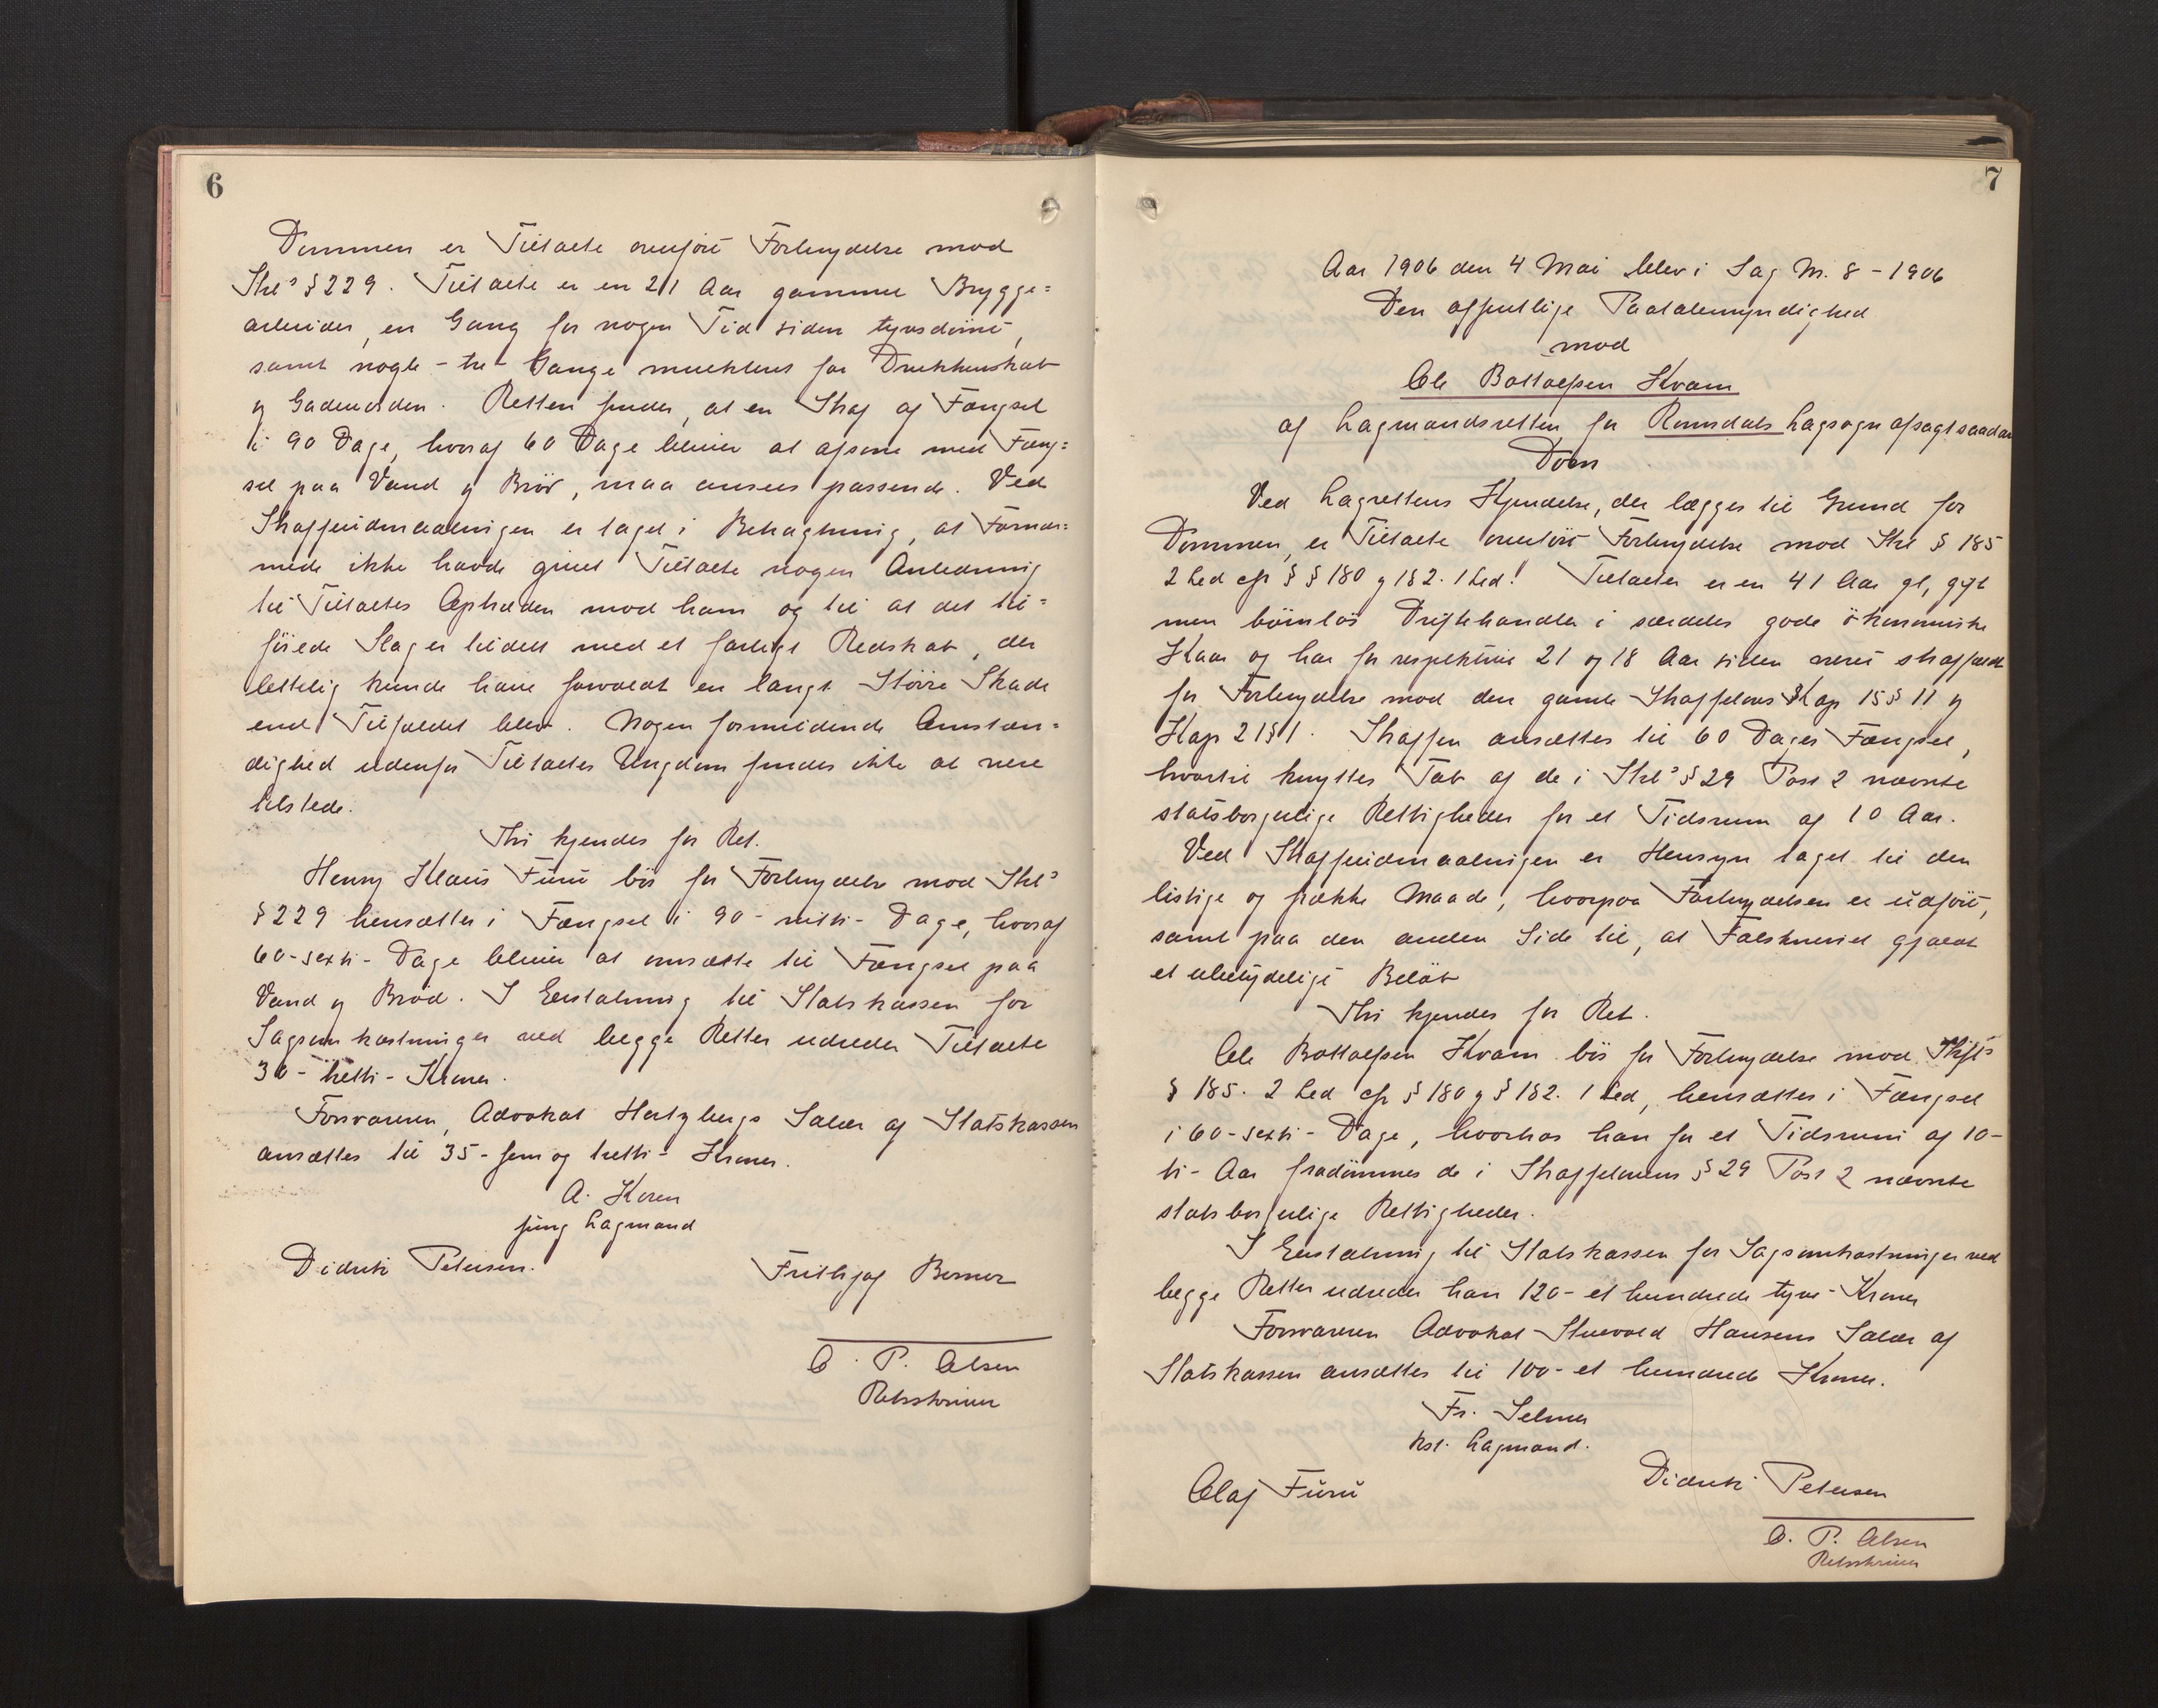 6
Dommen er Tiltalte overført Forbrydelse mod
Strl's § 229. Tiltalte er en 21 Aar gammel Brygge=
arbeider, en Gang for nogen Tid siden tyvsdømt,
samt nogle - tre - Gange mulkteret for Drukkenskab
og Gadeuorden. Retten finder, at en Straf af Fængsel
i 90 Dage, hvoraf 60 Dage bliver at afsone med Fæng=
sel paa Vand og Brød, maa ansees passende. Ved
Straffeudmaalingen er taget i Betragtning, at Fornær=
mede ikke havde givet Tiltalte nogen Anledning
til Tiltaltes Optræden mod ham og til at det til=
føiede Slag er tildelt med et farligt Redskab, der
lettelig kunde have forvoldt en langt større Skade
end Tilfældet blev. Nogen formildende Omstæn=
dighed udenfor Tiltaltes Ungdom findes ikke at være
tilstede.
Thi kjendes for Ret.
Henry Klaus Furu bør for Forbrydelse mod Strl's
§ 229 hensættes i Fængsel i 90 - nitti - Dage, hvoraf
60 - sexti - Dage bliver at omsætte til Fængsel paa
Vand og Brød. I Erstatning til Statskassen for
Sagsomkostninger ved begge Retter udreder Tiltalte
30 - tretti - Kroner.
Forsvareren, Advokat Hertzbergs Salær af Statskassen
ansættes til 35 - fem og tretti - Kroner.
A. Koren
fung Lagmand
Didrik Petersen.
Frithjof Berner
O. P. Olsen
Retsskriver
7
Aar 1906 den 4 Mai blev i Sag Nr. 8 - 1906
Den offentlige Paatalemyndighed
mod
Ole Bottolfsen Kvam
af Lagmandsretten for Romsdals Lagsogn afsagt saadan
Dom
Ved Lagrettens Kjendelse, der lægges til Grund for
Dommen, er Tiltalte overført Forbrydelse mod Strl § 185
2 Led cfr § § 180 og 182. 1 Led. Tiltalte er en 41 Aar gl, gift
men børnløs Driftehandler i særdeles gode økonomiske
Kaar og har for respektive 21 og 18 Aar siden været straffældt
for Forbrydelse mod den gamle Straffelovs Kap 15 § 11 og
Kap 21 § 1. Straffen ansættes til 60 Dages Fængsel,
hvortil knyttes Tab af de i Strl's § 29 Post 2 nævnte
statsborgerlige Rettigheder for et Tidsrum af 10 Aar.
Ved Straffeudmaalingen er Hensyn taget til den
listige og frække Maade, hvorpaa Forbrydelsen er udført,
samt paa den anden Side til, at Falskneriet gjaldt
et ubetydeligt Beløb
Thi kjendes for Ret.
Ole Bottolfsen Kvam bør for Forbrydelse mod
§ 185. 2 Led cfr § 180 og § 182. 1 Led, hensættes i Fængsel
i 60 - sexti - Dage, hvorhos han for et Tidsrum af 10 -
ti - Aar fradømmes de i Straffelovens § 29 Post 2 nævnte
statsborgerlige Rettigheder.
I Erstatning til Statskassen for Sagsomkostninger ved
begge Retter udreder han 120 - et hundrede tyve - Kroner
Forsvareren Advokat Stuevold Hansens Salær af
Statskassen ansættes til 100 - et hundrede Kroner.
Fr. Selmer
kst. Lagmand.
Olaf Furu
Didrik Petersen
O. P. Olsen
Retsskriver